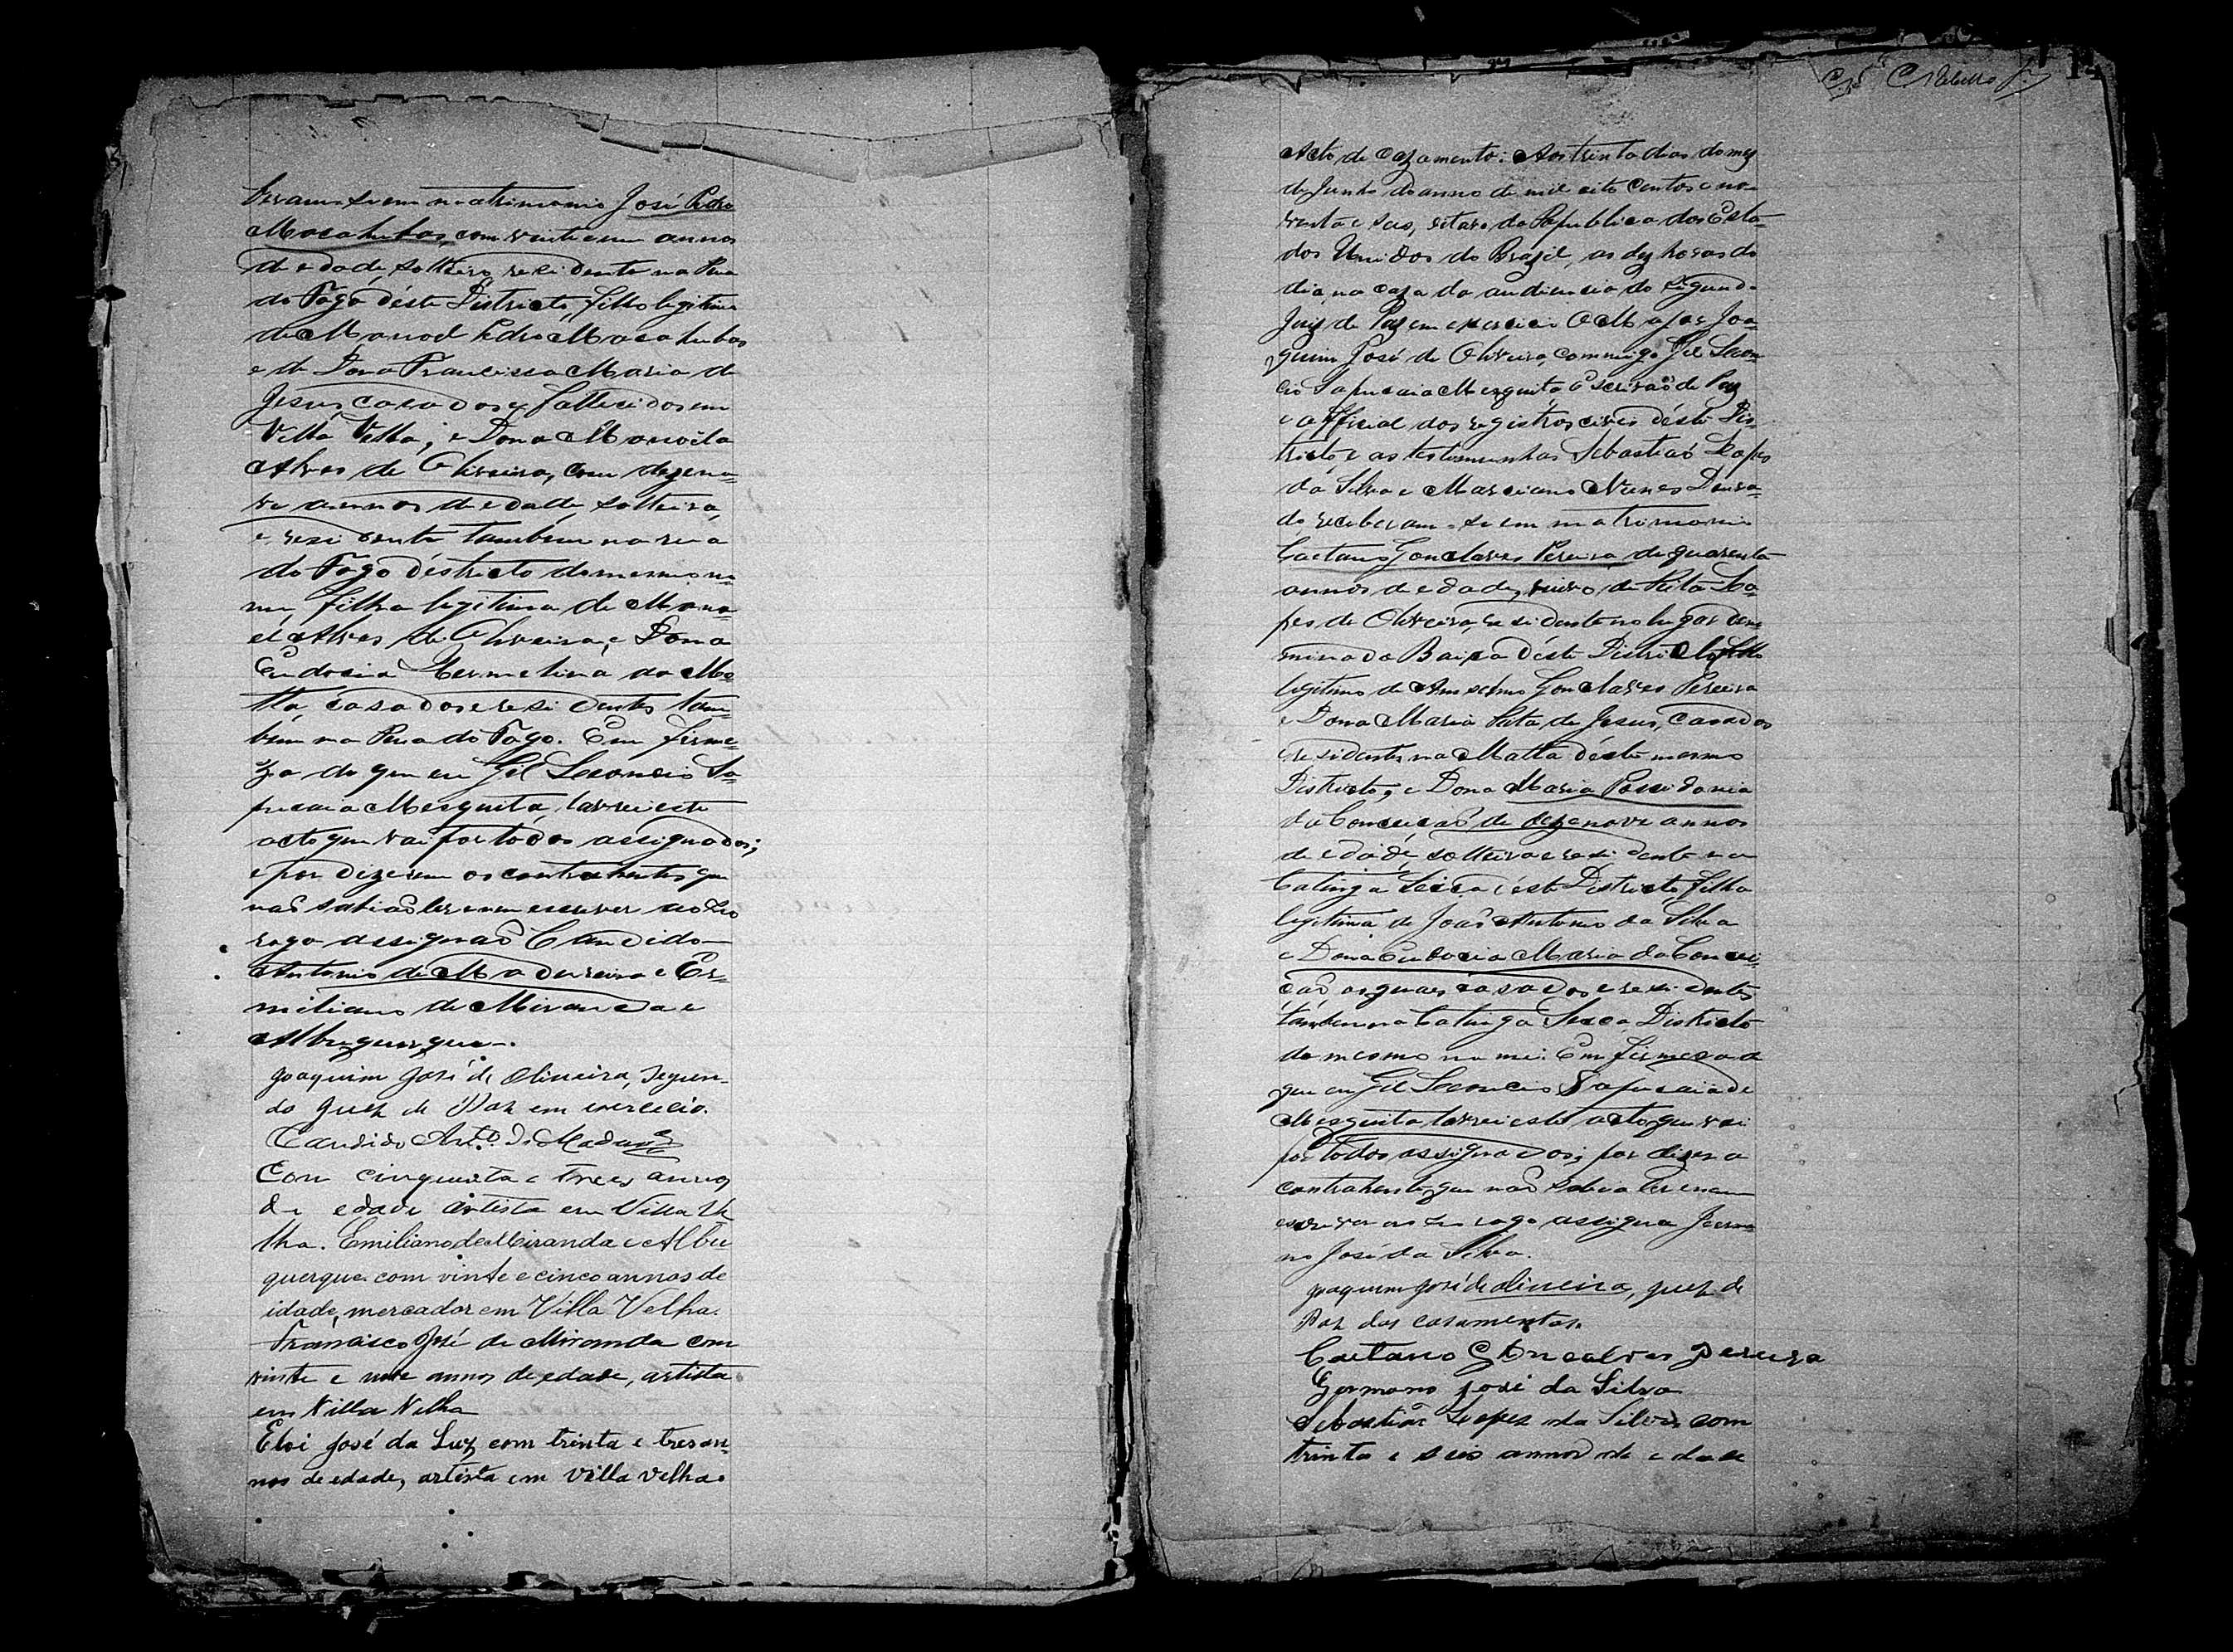 beram-se em matrimonio José Pedro
Macahubas, com vinte e um annos
de edade, solteiro, residente na Rua
do Fogo déste Districto, filho legitimo
de Manoel Pedro Macahubas
e de Dona Francisca Maria de
Jesus, casados e fallecidos em
Villa Velha; e Dona Manoela
Alves de Oliveira, com dezeno=
ve annos de edade, solteira,
e residente tambem na rua
do Fogo déstricto do mesmo no
me, filha legitima de Mano
el Alves de Oliveira, e Dona
Eudosia Hermelina da Mo=
tta, casados e residentes tam=
bem na Rua do Fogo. Em firme=
za do que eu Gil Leoncio Sa=
pucaia Mesquita, lavrei este
acto que vai por todos assignados;
e por dizerem os contrahentes que
naõ sabiaõ ler e nem escrever ao seo
rogo assignaõ Candido
Antonio de Madureira e Er=
miliano de Miranda e
Albuquerque.
Joaquim José de Oliveira, Segun-
do Juez de Paz em exercecio.
Candido Ant.º de Madur.ª
Com cinquenta e trees annos
de edade artista em Villa Ve
lha. Emiliano de Miranda e Albu
querque com vinte e cinco annos de
idade, mercador em Villa Velha.
Francisco José de Miranda com
vinte e nove annos de edade, artista
em Villa Velha
Eloi José da Luz com trinta e tres an-
nos de edade, artista em Villa Velha.
Acto de Cazamento: Aos trinta dias do mez
de Junho do anno de mil oito centos e no-
venta e seis, oitavo da Republica dos Esta-
dos Unidos do Brazil, as dez horas do
dia, na caza da audiencia do Segundo
Juiz de Paz em exercicio O Major Joa=
quim José de Oliveira, commigo Gil Leon=
cio Sapucaia Mesquita, Escrivaõ de Paz
e official dos registros civis déste Dis=
tricto, e as testemunhas Sebastiaõ Lopes
da Silva e Marciano Nunes Doura=
do receberam=se em matrimonio
Caetano Gonclaves Pereira, de quarenta
annos de edade, viuvo de Rita Lo=
pes de Oliveira, residente no lugar deno
minado Baixa déste Districto, filho
legitimo de Anselmo Gonclaves Pereira
e Dona Maria Rita de Jesus, casados
e residentes na Matta déste mesmo
Districto; e Dona Maria Possidonia
da Conceicaõ de dezenove annos
de edade, solteira e residente na
Catinga Secca déste Districto, filha
legitima de Joaõ Antonio da Silva
e Dona Eudocia Maria da Concei=
caõ os quaes casados e residentes
tambem na Catinga Secca, Districto
do mesmo nome: Em firmeza do
que eu Gil Leoncio Sapucaia de
Mesquita lavrei este acto que vai
por todos assignados; por dizer a
contrahente que naõ sabia ler e nem
escrever ao seu rogo assigna Germa
no José da Silva.
Joaquim José de Oliveira, Juez de
Paz dos casamentos.
Caetano Goncalves Pereira
Germano José da Silva
Sebastiaõ Lopes da Silva com
trinta e seis annos de edade